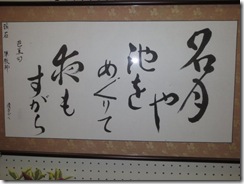 名月
や
池を
めぐりて
夜も
すがら
芭蕉句